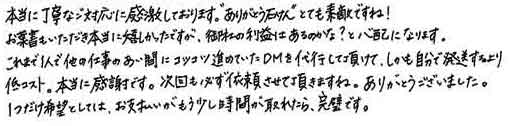 本当に丁寧なご対応に感激しております。"ありがとう石けん"とても素敵ですね!
お葉書もいただき本当に嬉しかったですが、御社の利益はあるのかな?と心配になります。
これまで1人で他の仕事のあい間にコツコツ進めていたDMを代行して頂けて、しかも自分で発送するより
低コスト。本当に感謝です。次回も必ず依頼させて頂きますね。ありがとうございました。
1つだけ希望としては、お支払いがもう少し時間が取れたら、完璧です。